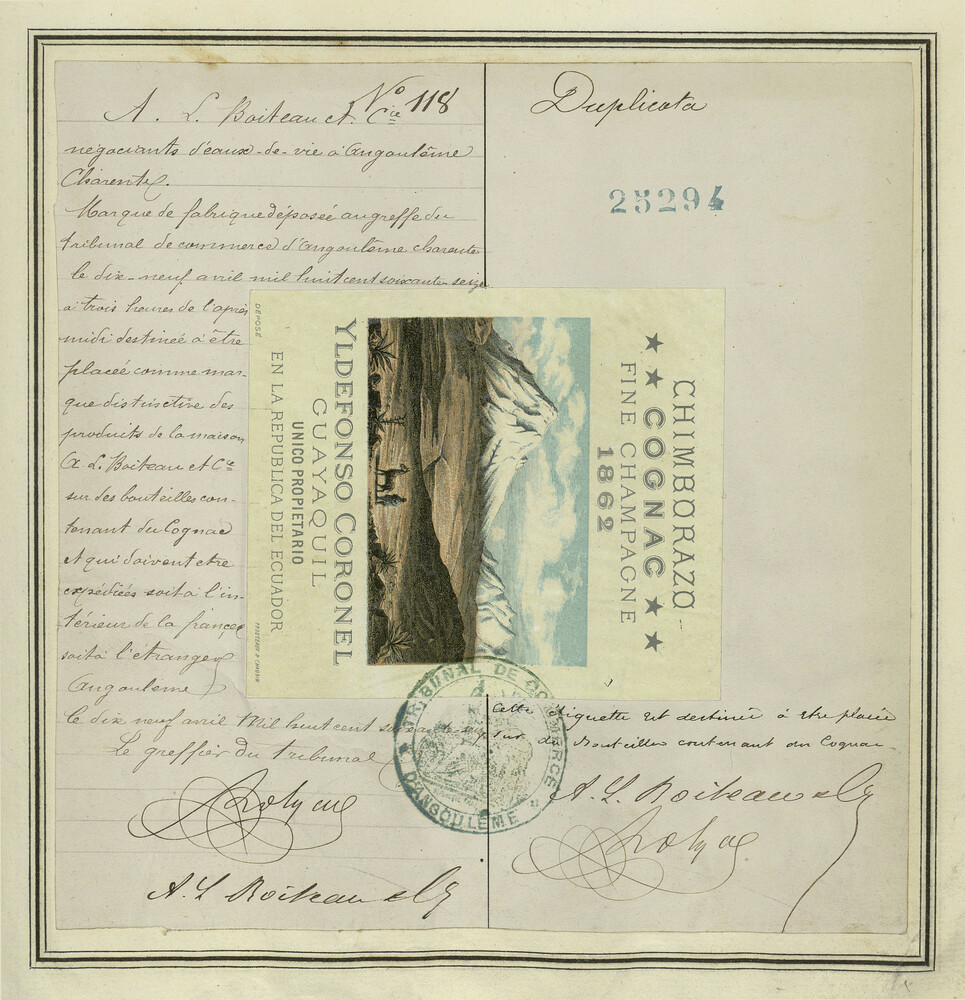 Nº 118
A. L. Boiteau et Cie
négociants d'eaux-de-vie à Angoulême
Charente.
Marque de fabrique déposée au greffe du
tribunal de commerce d'Angoulême charente
le dix-neuf avril mil huit cent soixante seize
à trois heures de l'après
midi destinée à être
placée comme mar-
que distinctive des
produits de la maison
A. L. Boiteau et Cie
sur des bouteilles con-
tenant du Cognac
et qui doivent etre
expédiées soit à l'in-
térieur de la france
soit à l'etranger
Angoulême
le dix neuf avril Mil huit cent
Le greffier du tribunal
A. L. Boiteau & Cie
Duplicata
25294
CHIMBORAZO
★ ★ COGNAC ★ ★
FINE CHAMPAGNE
1862
YLDEFONSO CORONEL
GUAYAQUIL
UNICO PROPIETARIO
EN LA REPUBLICA DEL ECUADOR
DEPOSÉ
TRIBUNAL DE COMMERCE
D'ANGOULÊME
Cette étiquette est destinée à etre placée
sur des Bouteilles contenant du Cognac
A. L. Boiteau & Cie